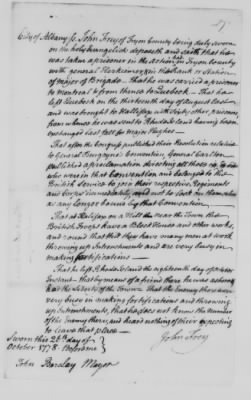 City of Albany ss. John Frey of Tryon County being duly sworn
on the holy Evangelists deposeth and saith that he
was taken prisoner in the Action in Tryon County
with general Herkemer in the Rank or Station
of major of Brigade — That he was carried a prisoner
to Montreal & from thence to Quebeck — That he
left Quebeck on the thirteenth day of August last
and was brought to Hallifax with sixty other prisoners
from whence he was sent to Rhode Island having been
exchanged last fall for major Hughes —
That after the Congress published their Resolution relative
to General Burgoyne's Convention, General Carlton
published a proclamation directing all those of
who were in that Convention and belonged to the
British Service to join their respective Regiments
and Corps immediately and not to look on themselves
as any longer bound by that Convention
That at Halifax on a Hill the near the Town the
British Troops have a Block House and other works
and that they have many men at work
throwing up Intrenchments and are very busy in
making fortifications —
That he left Rhode Island the eighteenth day of
Instant — that by means of a friend there he was
at the of the Town That the Enemy there were
very busy in making fortifications and throwing
up Intrenchments, that he does not know the number
of the Enemy there, and heard nothing of their expecting
to leave that place —
Sworn this 26th day of
October 1778 Before me
John Frey
John Barclay Mayor